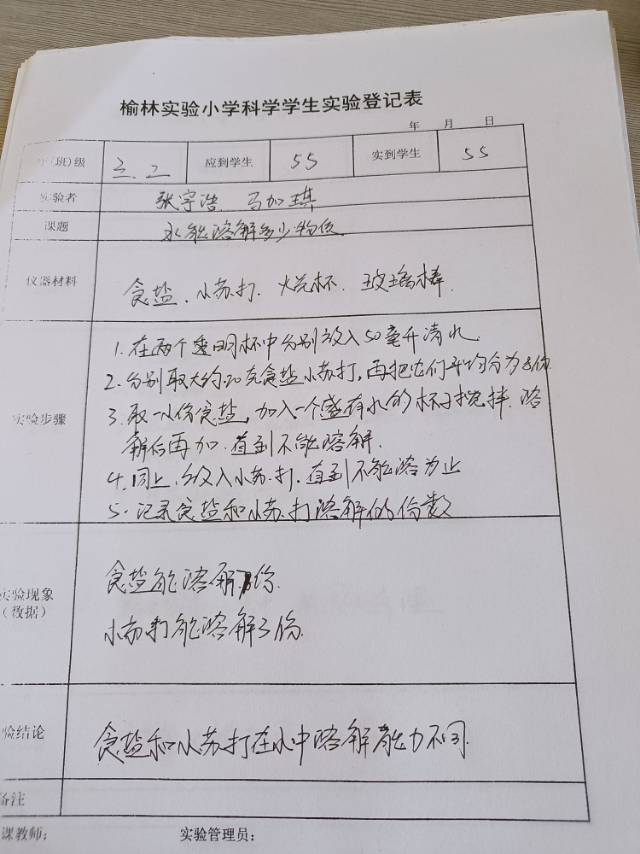 榆林实验小学科学学生实验登记表
年 月 日
(班)级 三.二 应到学生 55 实到学生 55
实验者 张宇浩 马加琪
课题 水能溶解多少物质
仪器材料 食盐、小苏打、烧杯、玻璃棒
1.在两个透明杯中分别放入50毫升清水
2.分别取大约20克食盐小苏打,再把它们平均分为8份
实验步骤 3.取一小份食盐,加入一个盛有水的杯子搅拌.溶
解后再加.直到不能溶解.
4.同上,放入小苏打.直到不能溶为止
5.记录食盐和小苏打溶解的份数
实验现象 食盐能溶解 份.
(数据) 小苏打能溶解3份.
验结论 食盐和小苏打在水中溶解能力不同.
备注
课教师: 实验管理员: